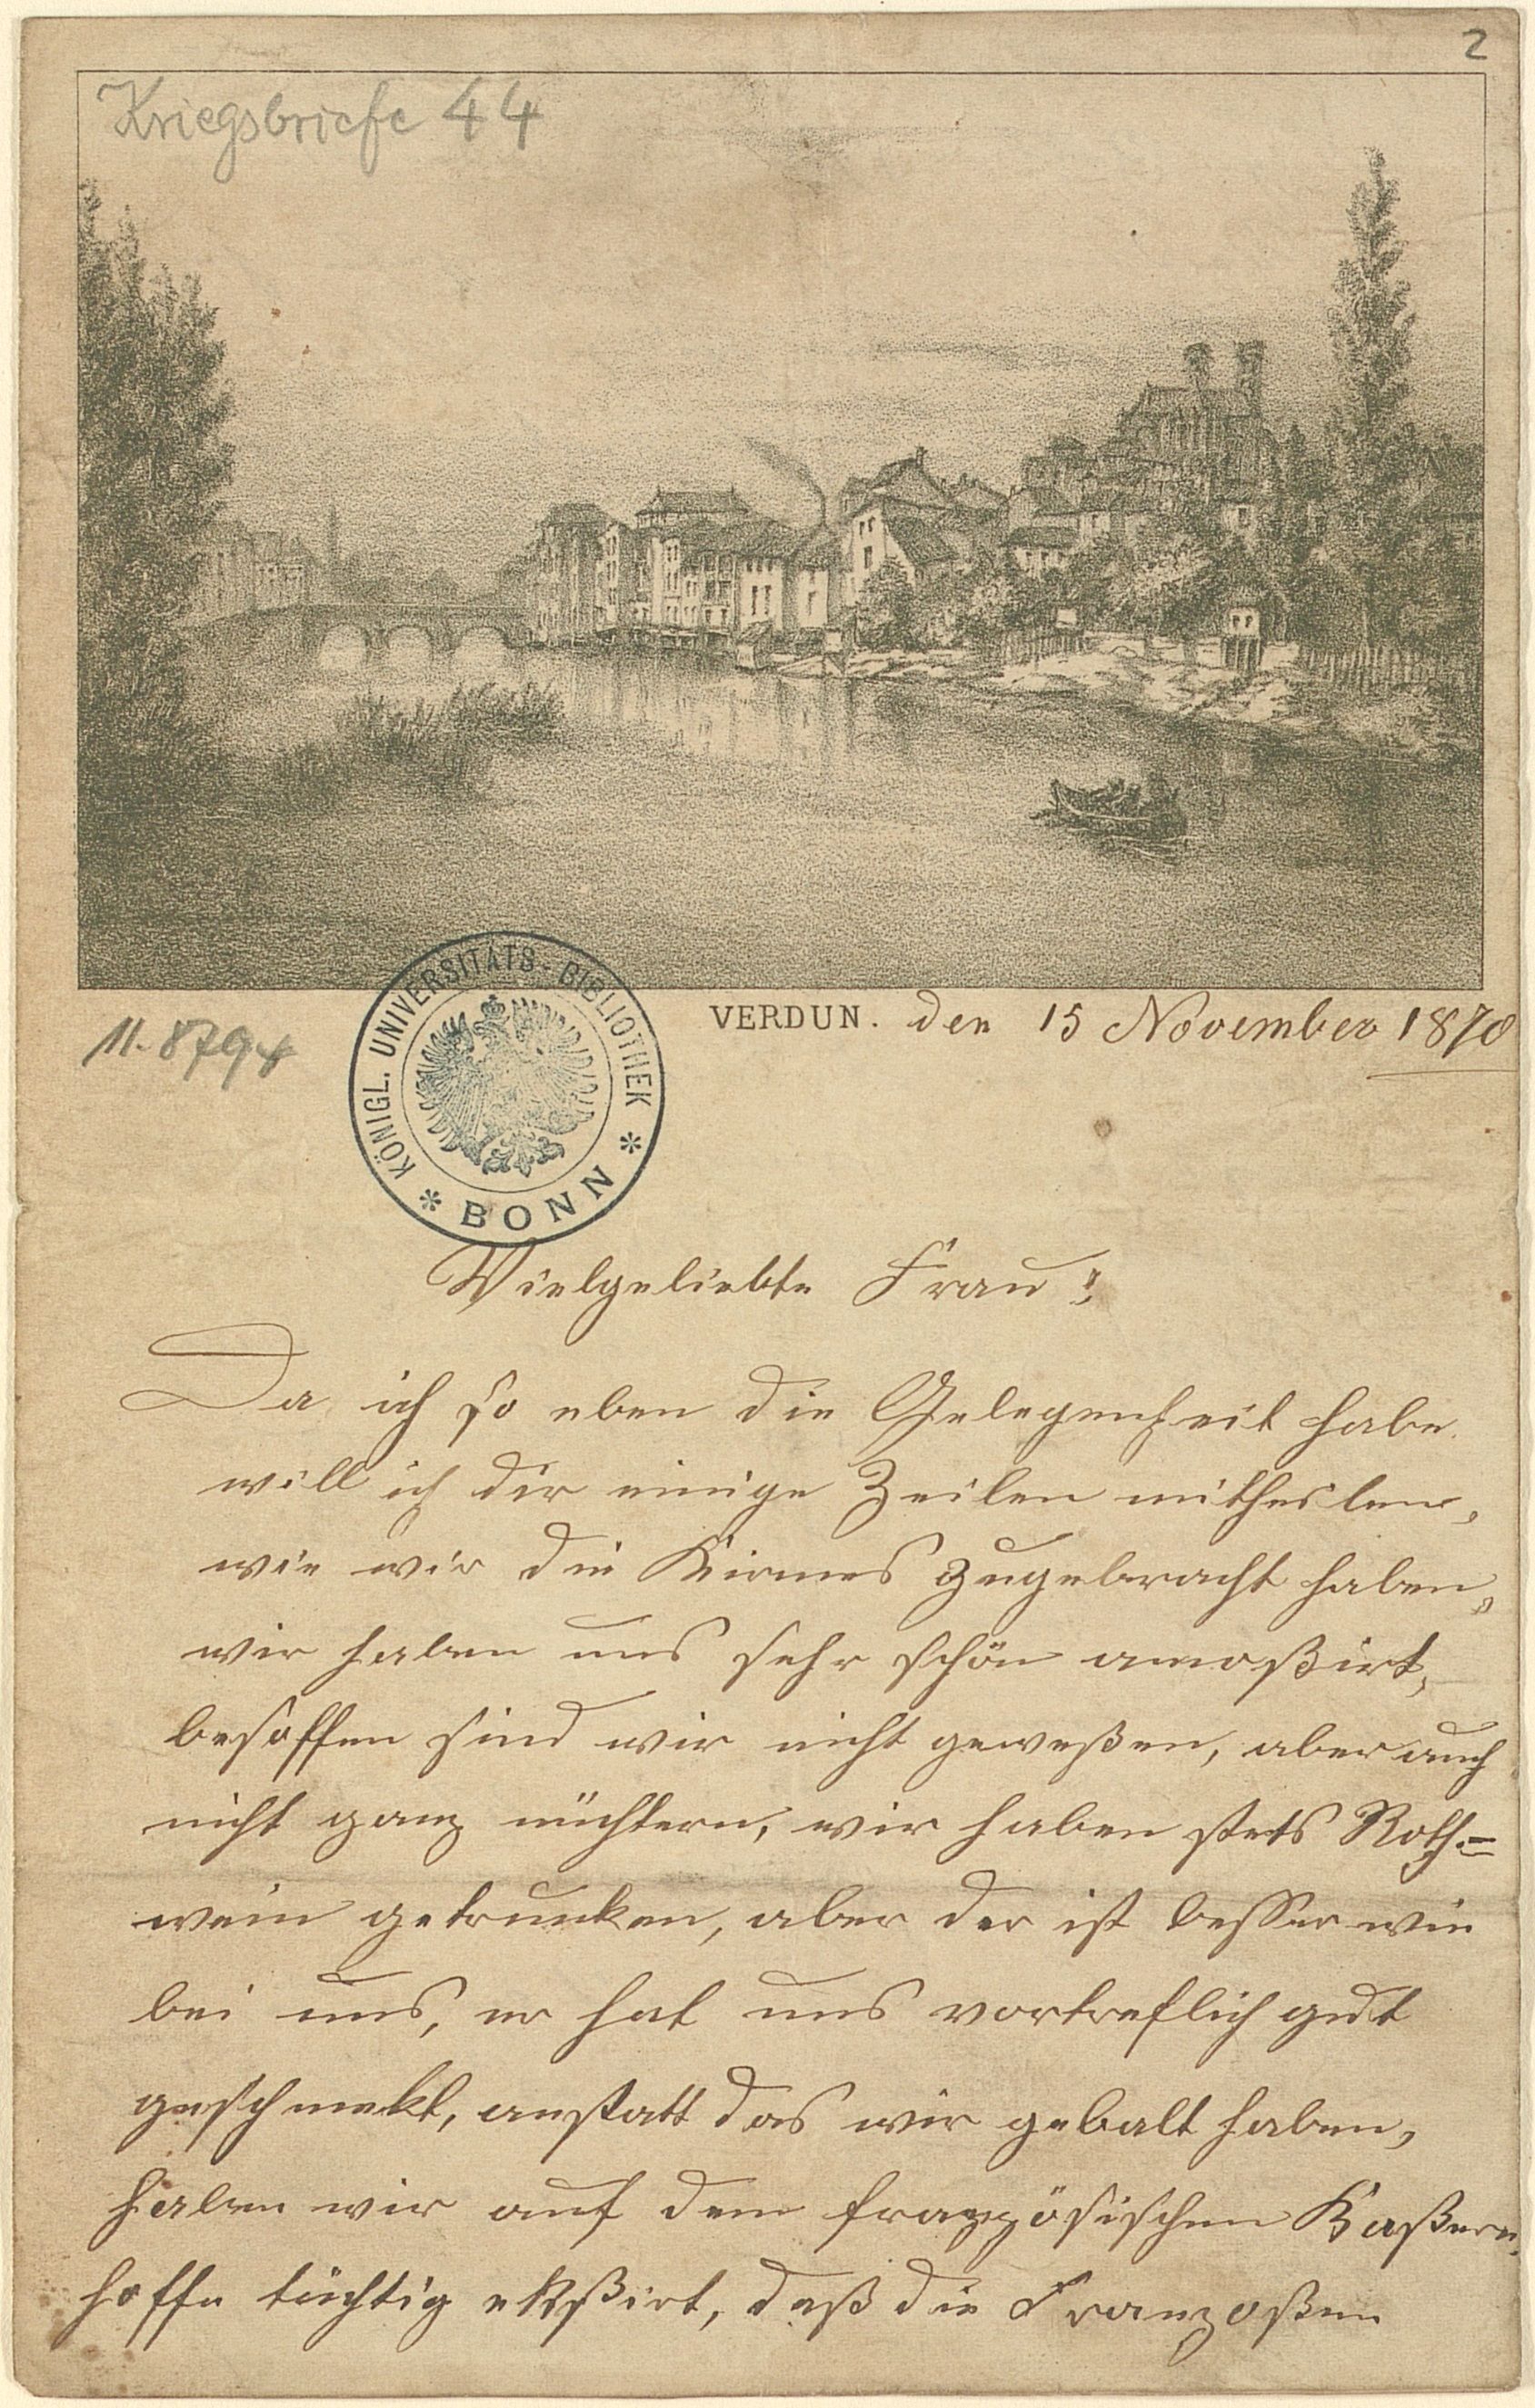 2
Kriegsbriefe 44
KÖNIGL. UNIVERSITÄTS-BIBLIOTHEK
* BONN *
VERDUN. den 15 November 1870
11.8794
Vielgeliebte Frau!
Da ich so eben die Gelegenheit habe
will ich dir einige Zeilen mitheilen,
wie wir die Kirmes zugebracht haben,
wir haben uns sehr schön amoßirt,
besoffen sind wir nicht geweßen, aber auch
nicht ganz nüchtern, wir haben stets Roth=
wein getrunken, aber der ist besser wie
bei uns, er hat uns vortreflich gut
geschmekt, anstatt das wir gebalt haben,
haben wir auf dem französischen Kaßern
hoffe tüchtig ekßirt, daß die Franzoßen